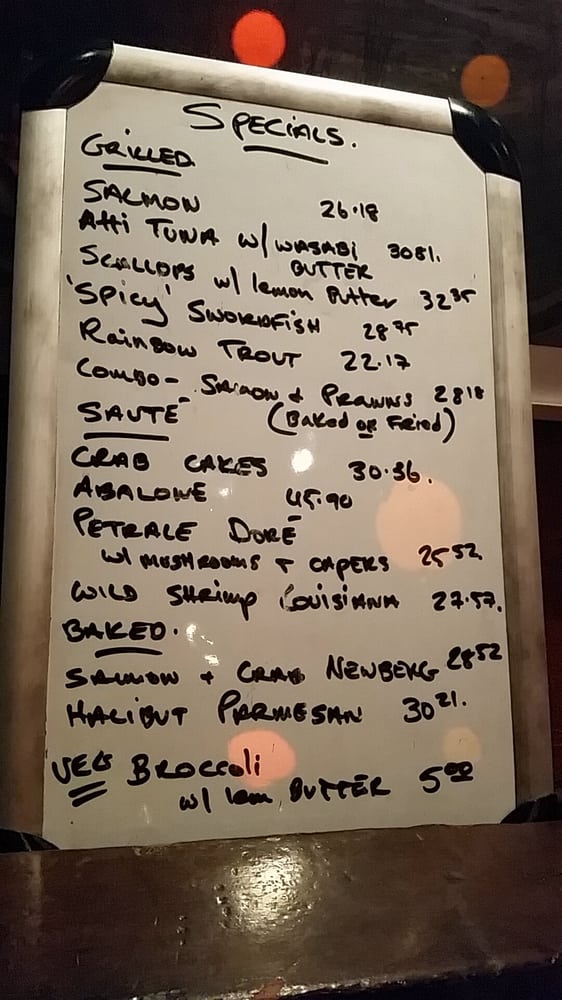 SPECIALS.
GRILLED
SALMON 26.18
AHI TUNA w/ WASABI 3081.
BUTTER
SCALLOPS w/ lemon Butter 32 35
'Spicy' SWORDFISH 28 75
RAINBOW TROUT 22.17
COMBO- SALMON & PRAWNS 28 18
SAUTÉ (BAKED OR FRIED)
CRAB CAKES 30.36.
ABALONE 45.90
PETRALE DORÉ
w/ MUSHROOMS + CAPERS 25 52
WILD SHRIMP LOUISIANA 27.57.
BAKED.
SALMON + CRAB NEWBERG 28 52
HALIBUT PARMESAN 30 21.
VEG BROCCOLI
w/ lem BUTTER 5 00